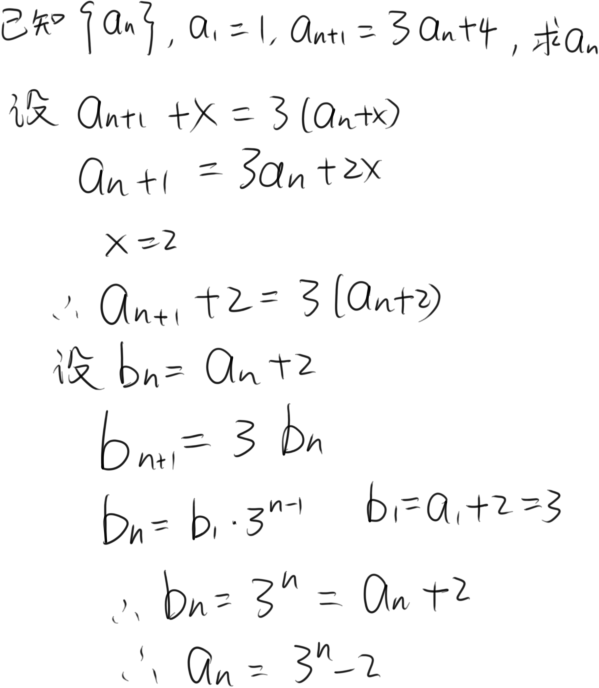 已知{aₙ}, a₁=1, aₙ₊₁=3aₙ+4, 求aₙ
设 aₙ₊₁+x=3(aₙ+x)
aₙ₊₁=3aₙ+2x
x=2
∴ aₙ₊₁+2=3(aₙ+2)
设 bₙ=aₙ+2
bₙ₊₁=3bₙ
bₙ=b₁·3ⁿ⁻¹ b₁=a₁+2=3
∴ bₙ=3ⁿ=aₙ+2
∴ aₙ=3ⁿ-2